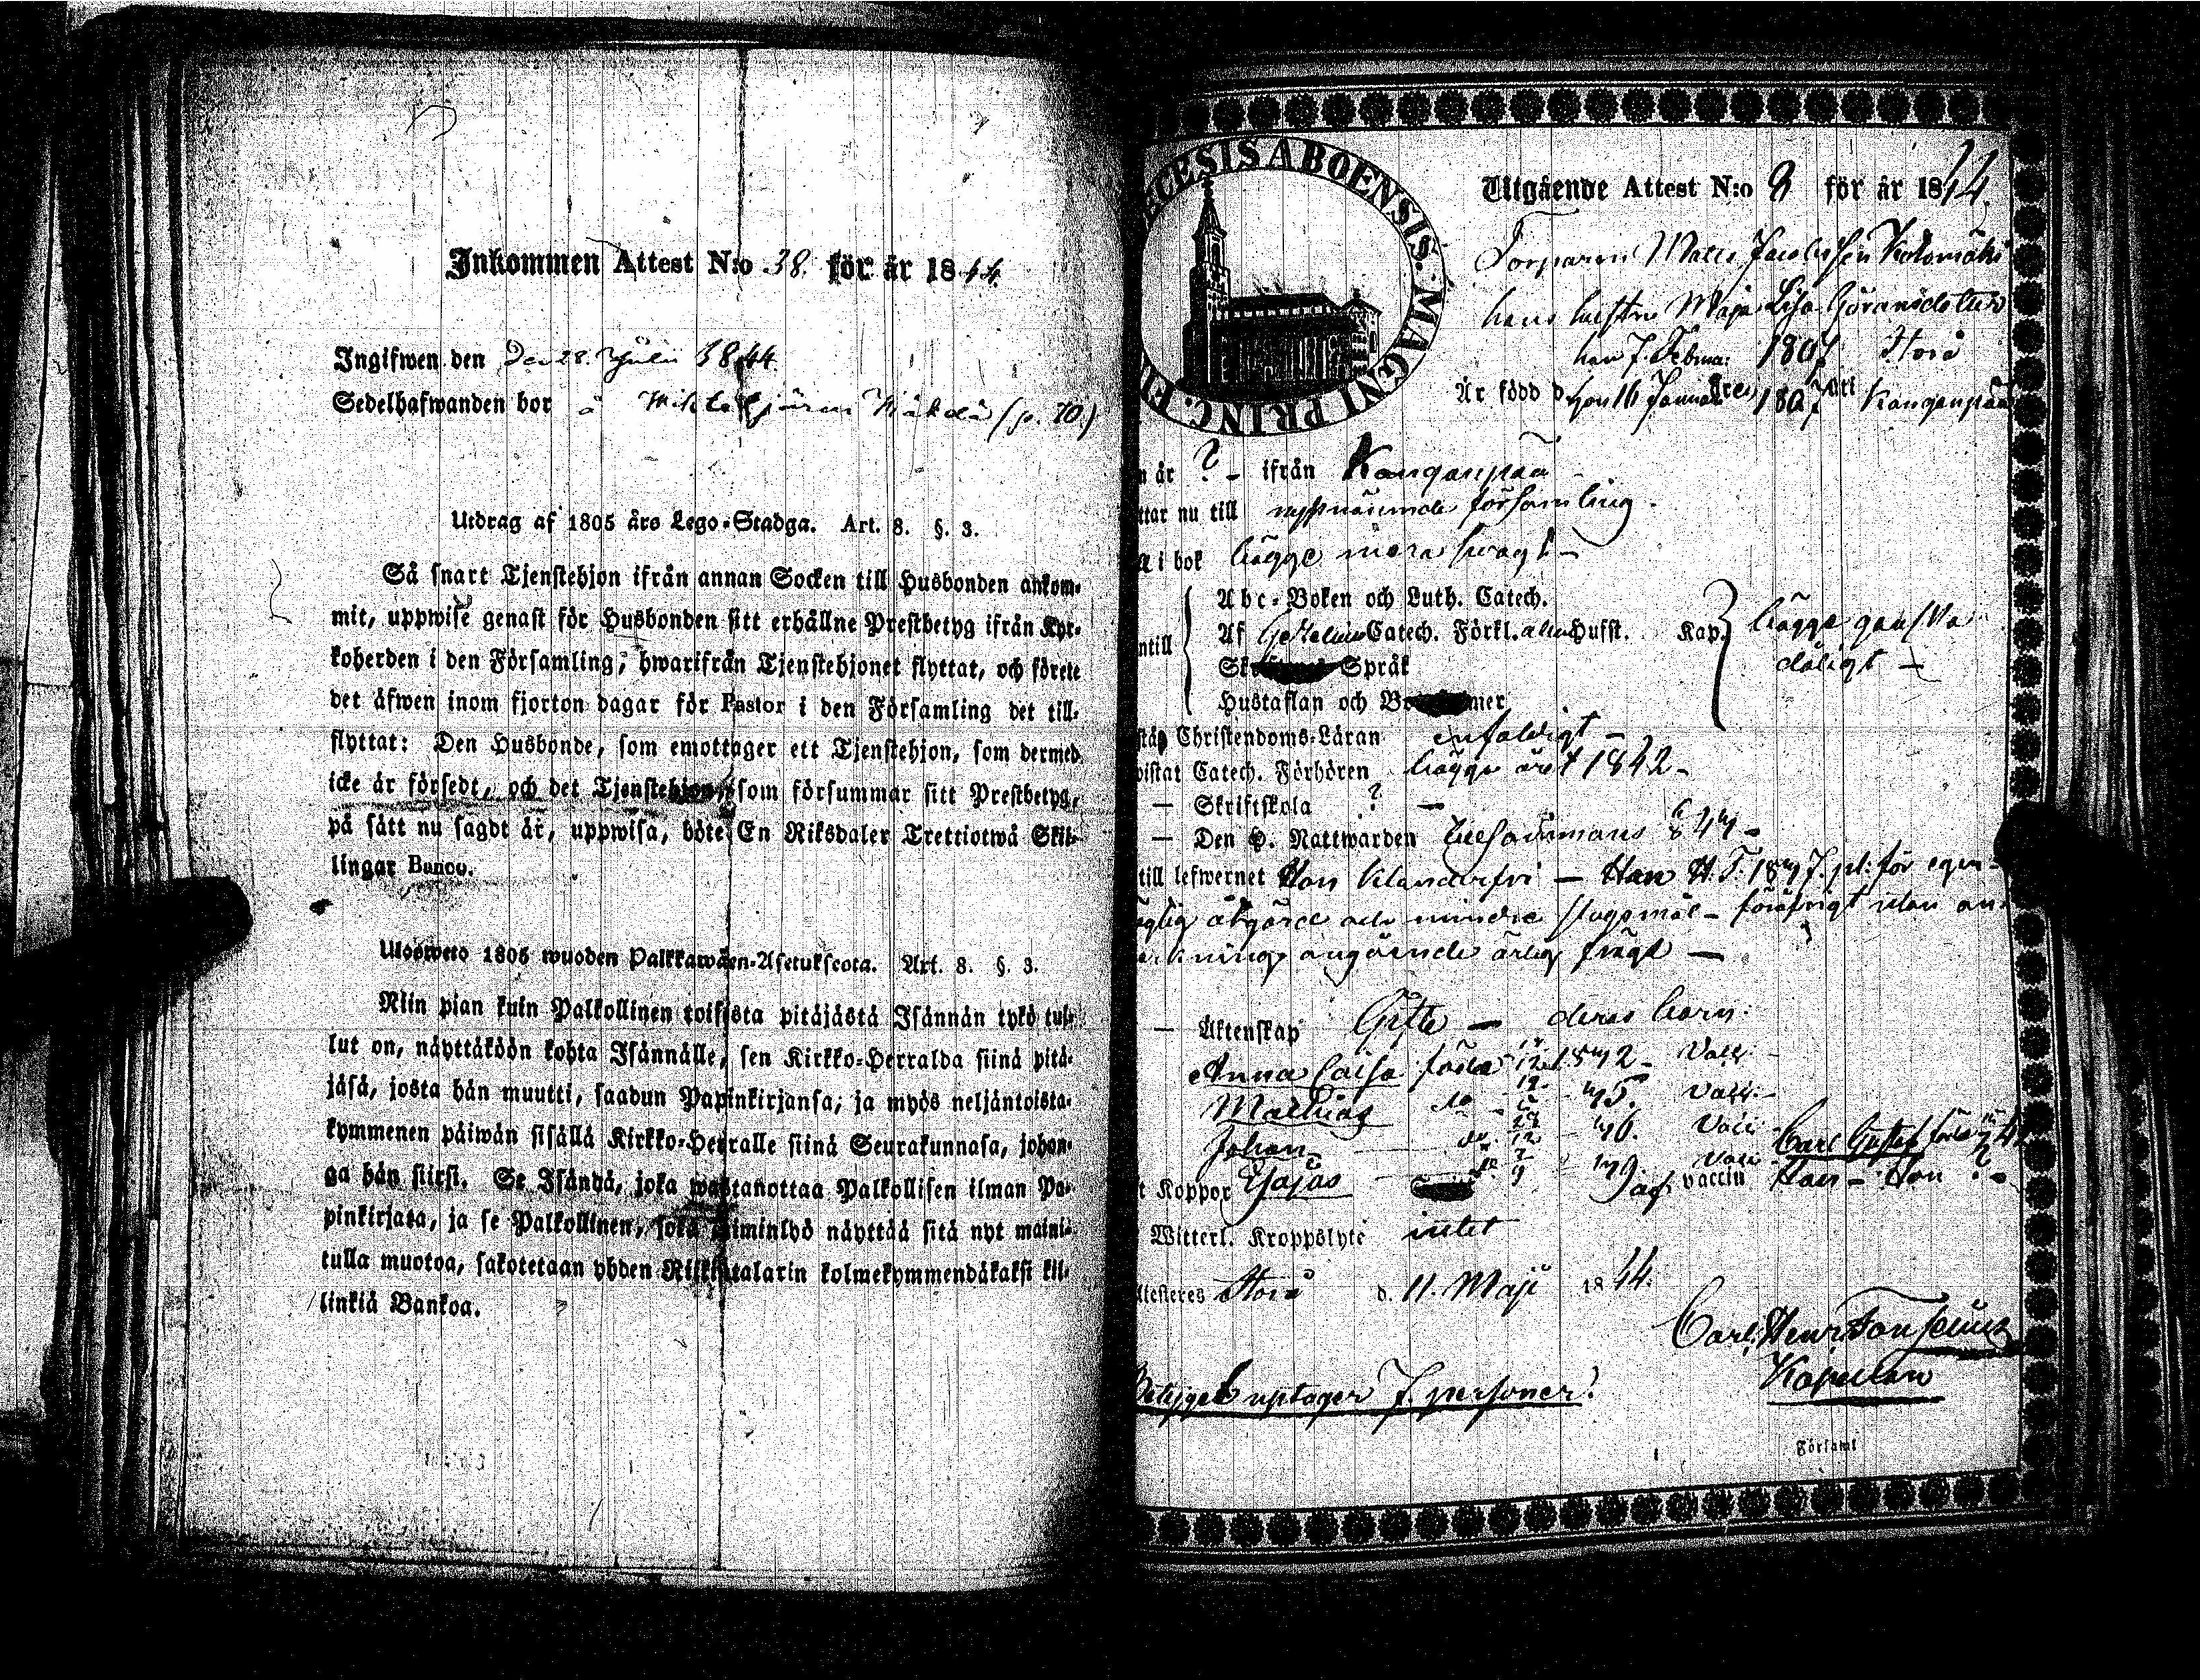 Inkommen Attest N:o 38. för år 1844.
Ingifwen den Den 28. Julii 1844.
Sedelhafwanden bor å (p. 70.)
Utdrag af 1805 års Lego-Stadga. Art. 8. §. 3.
Så snart Tjenstehjon ifrån annan Socken till Husbonden ankom-
mit, uppwise genast för Husbonden sitt erhållne Prestbetyg ifrån Kyr-
koherden i den Församling, hwarifrån Tjenstehjonet flyttat, och förete
det äfwen inom fjorton dagar för Pastor i den Församling det till-
flyttat: Den Husbonde, som emottager ett Tjenstehjon, som dermed
icke är försedt, och det Tjenstehjon, som försummar sitt Prestbetyg,
på sätt nu sagdt är, uppwisa, böte En Riksdaler Trettiotwå Skil-
lingar Banco.
Ulosweto 1805 wuoden Palkkawäen-Asetuksesta. Art. 8. §. 3.
Niin pian kuin Palkollinen toisesta pitäjästä Isännän tykö tul-
lut on, näyttäköön kohta Isännälle, sen Kirkko-Herralda siinä pitä-
jäsä, josta hän muutti, saadun Papinkirjansa; ja myös neljäntoista-
kymmenen päiwän sisällä Kirkko-Herralle siinä Seurakunnasa, johon-
ga hän siirsi. Se Isändä, joka wastanottaa Palkollisen ilman Pa-
pinkirjata, ja se Palkollinen, joka laiminlyö näyttää sitä nyt maini-
tulla muotoa, sakotetaan yhden Riikintalarin kolmekymmendäkaksi kil-
linkiä Bankoa.
ECESIS ABOENSIS. MAGNI PRINC. FI
Utgående Attest N:o 8 för år 1844.
Torparen Matts Jacobsson Kolomäki
hans hustru Maja Lisa Göransdotter
han 7. Februa: 1807 Storå
Är född d hon 16 Januarii 1807 uti Kanganpää
n år ? - ifrån Kanganpää
ttar nu till nyssnämnde församling.
a i bok bägge mera swagt -
ntill
Abc-Boken och Luth. Catech.
Af Catech. Förkl. Hufst. Kap.
Språk
Hustaflan och
bägge ganska
dåligt -
stån Christendoms-Läran enfaldigt -
wistat Catech. Förhören bägge året 1842 -
— Skriftskola ? —
— Den H. Nattwarden tillsammans
till lefwernet Hon klanderfri — Han för egen-
åtgärd och mindre - föröfrigt utan an-
märkning angående ärlig frägd —
— Äktenskap Gifte — deras barn:
Anna Caisa född Vacc: -
Mathias do 35. Vacc: -
Johan do 36. Vacc: Carl Gustaf född
t Koppor Esajas 39. vaccin Han - Hon ?
Witterl. Kroppslyte intet
llesteres Storå d. 11. Maji 1844.
Carl Henr. Fonselius
Kapellan
Betyget uptager 7. personer.
Församl